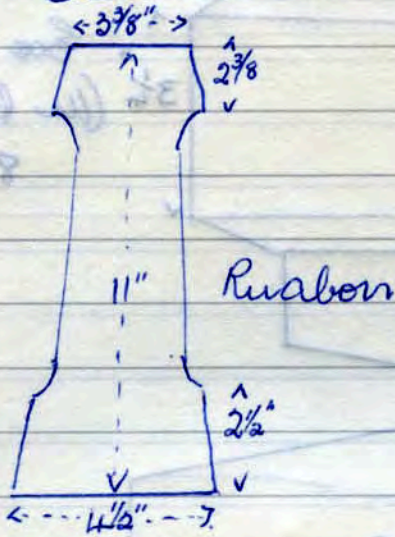 3 3/8"
2 3/8
11"
Ruabon
2 1/2"
4 1/2"